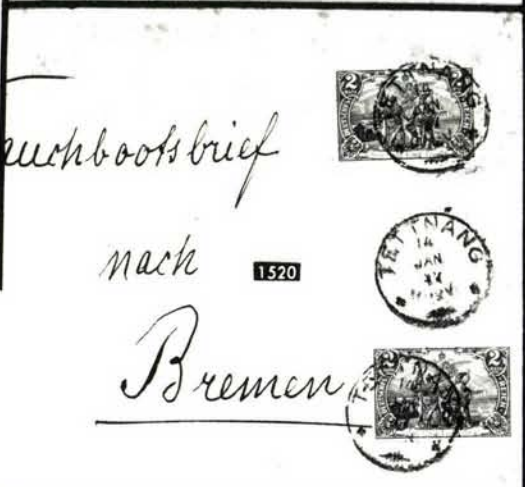 auchbootsbrief
nach
1520
Bremen
2 2
TETTNANG
TETTNANG
14
JAN
2 2